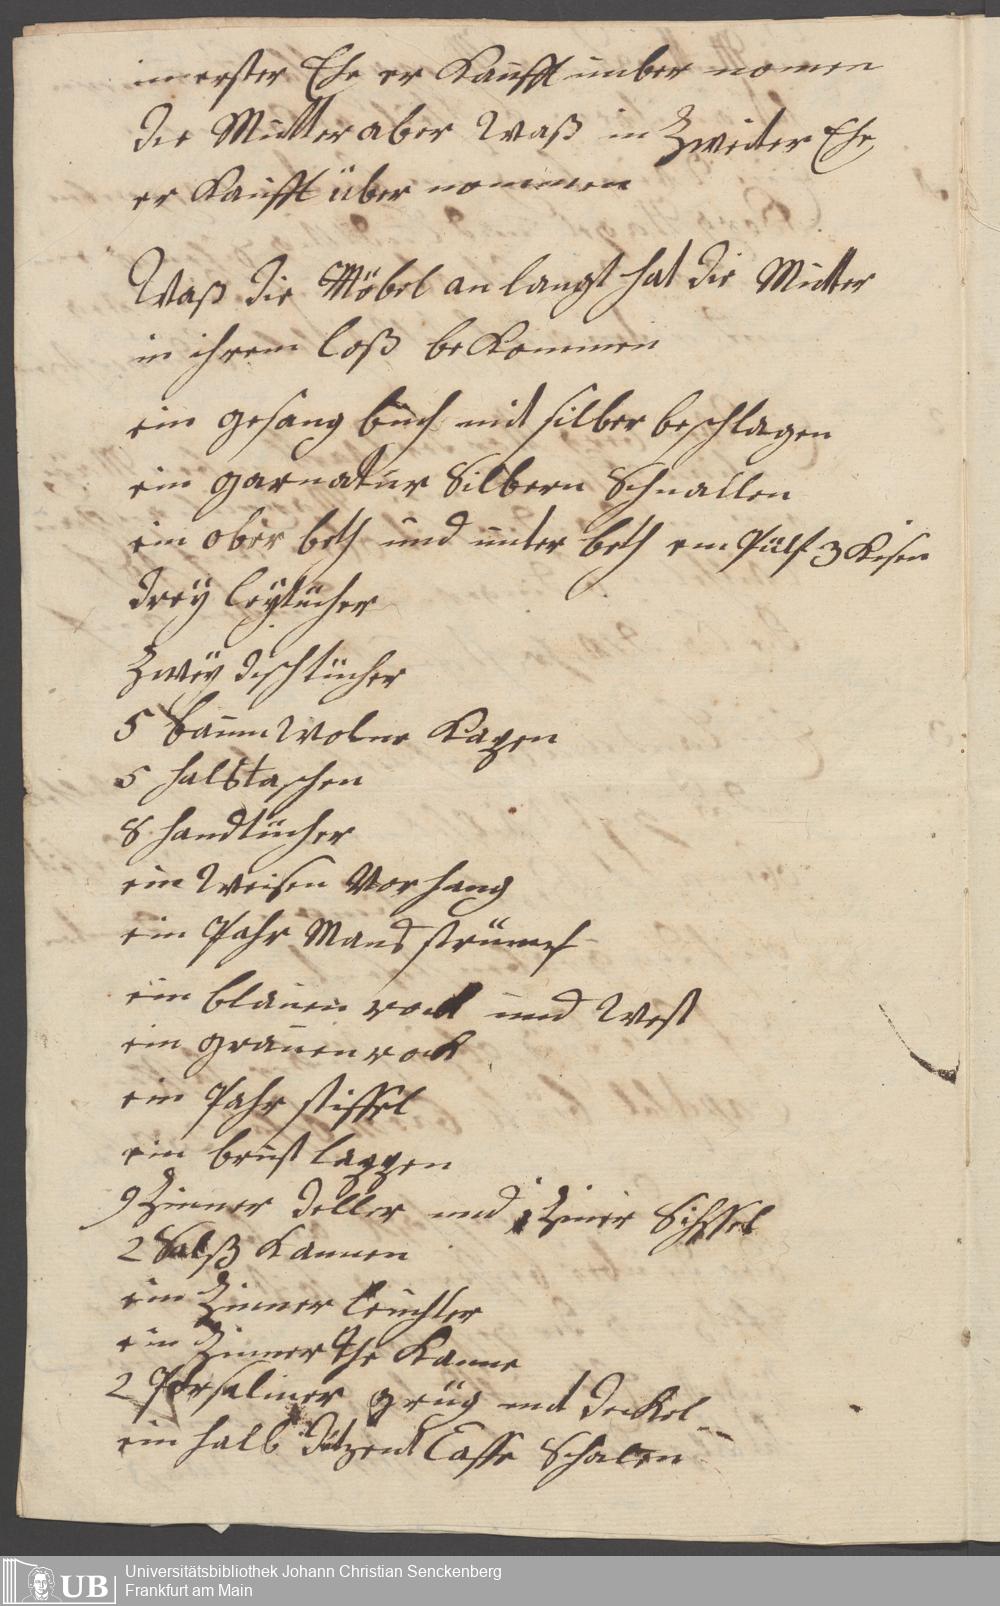 in erster Ehe er Kaufft unber nomen
die Mutter aber Waß in Zweiter Ehe
er Kaufft über nommen
Waß die Möbel an langt hat die Mutter
in ihrem loß bekommen
ein gesang buch mit silber beschlagen
ein garnatur Silbern Schnallen
ein ober beth und unter beth ein Pülf 3 Kisen
drey leytücher
Zwey dischtücher
5 baum Wolne Kapen
5 halstaschen
8 handtücher
ein Weisen Vorhang
ein Pahr Mans strümpf
ein blauen rock und West
ein grauen rock
ein Pahr stiffel
ein brust lappen
9 Zinner deller und 1 Ziner Schssel
2 Salß Kannen
ein Zinner leuchter
ein Zinner The Kanne
2 Porsaliner grüg mit deckel
ein halb dutzent Caffe Schalen
Universitätsbibliothek Johann Christian Senckenberg
Frankfurt am Main
UB